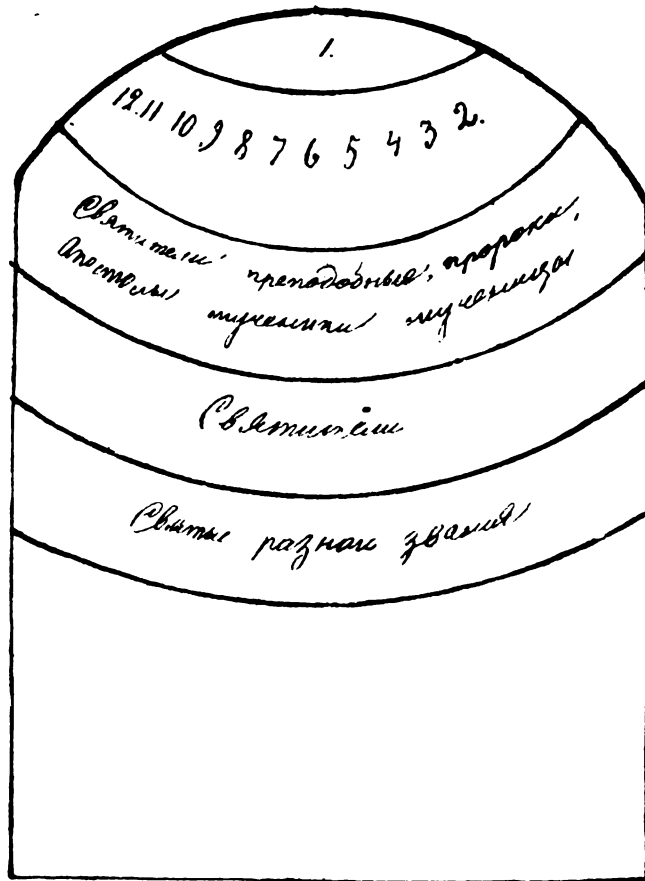 1.
12. 11 10 9 8 7 6 5 4 3 2.
Святители преподобные, пророки,
Апостолы мученики мученицы
Святители
Святые разнаго звания